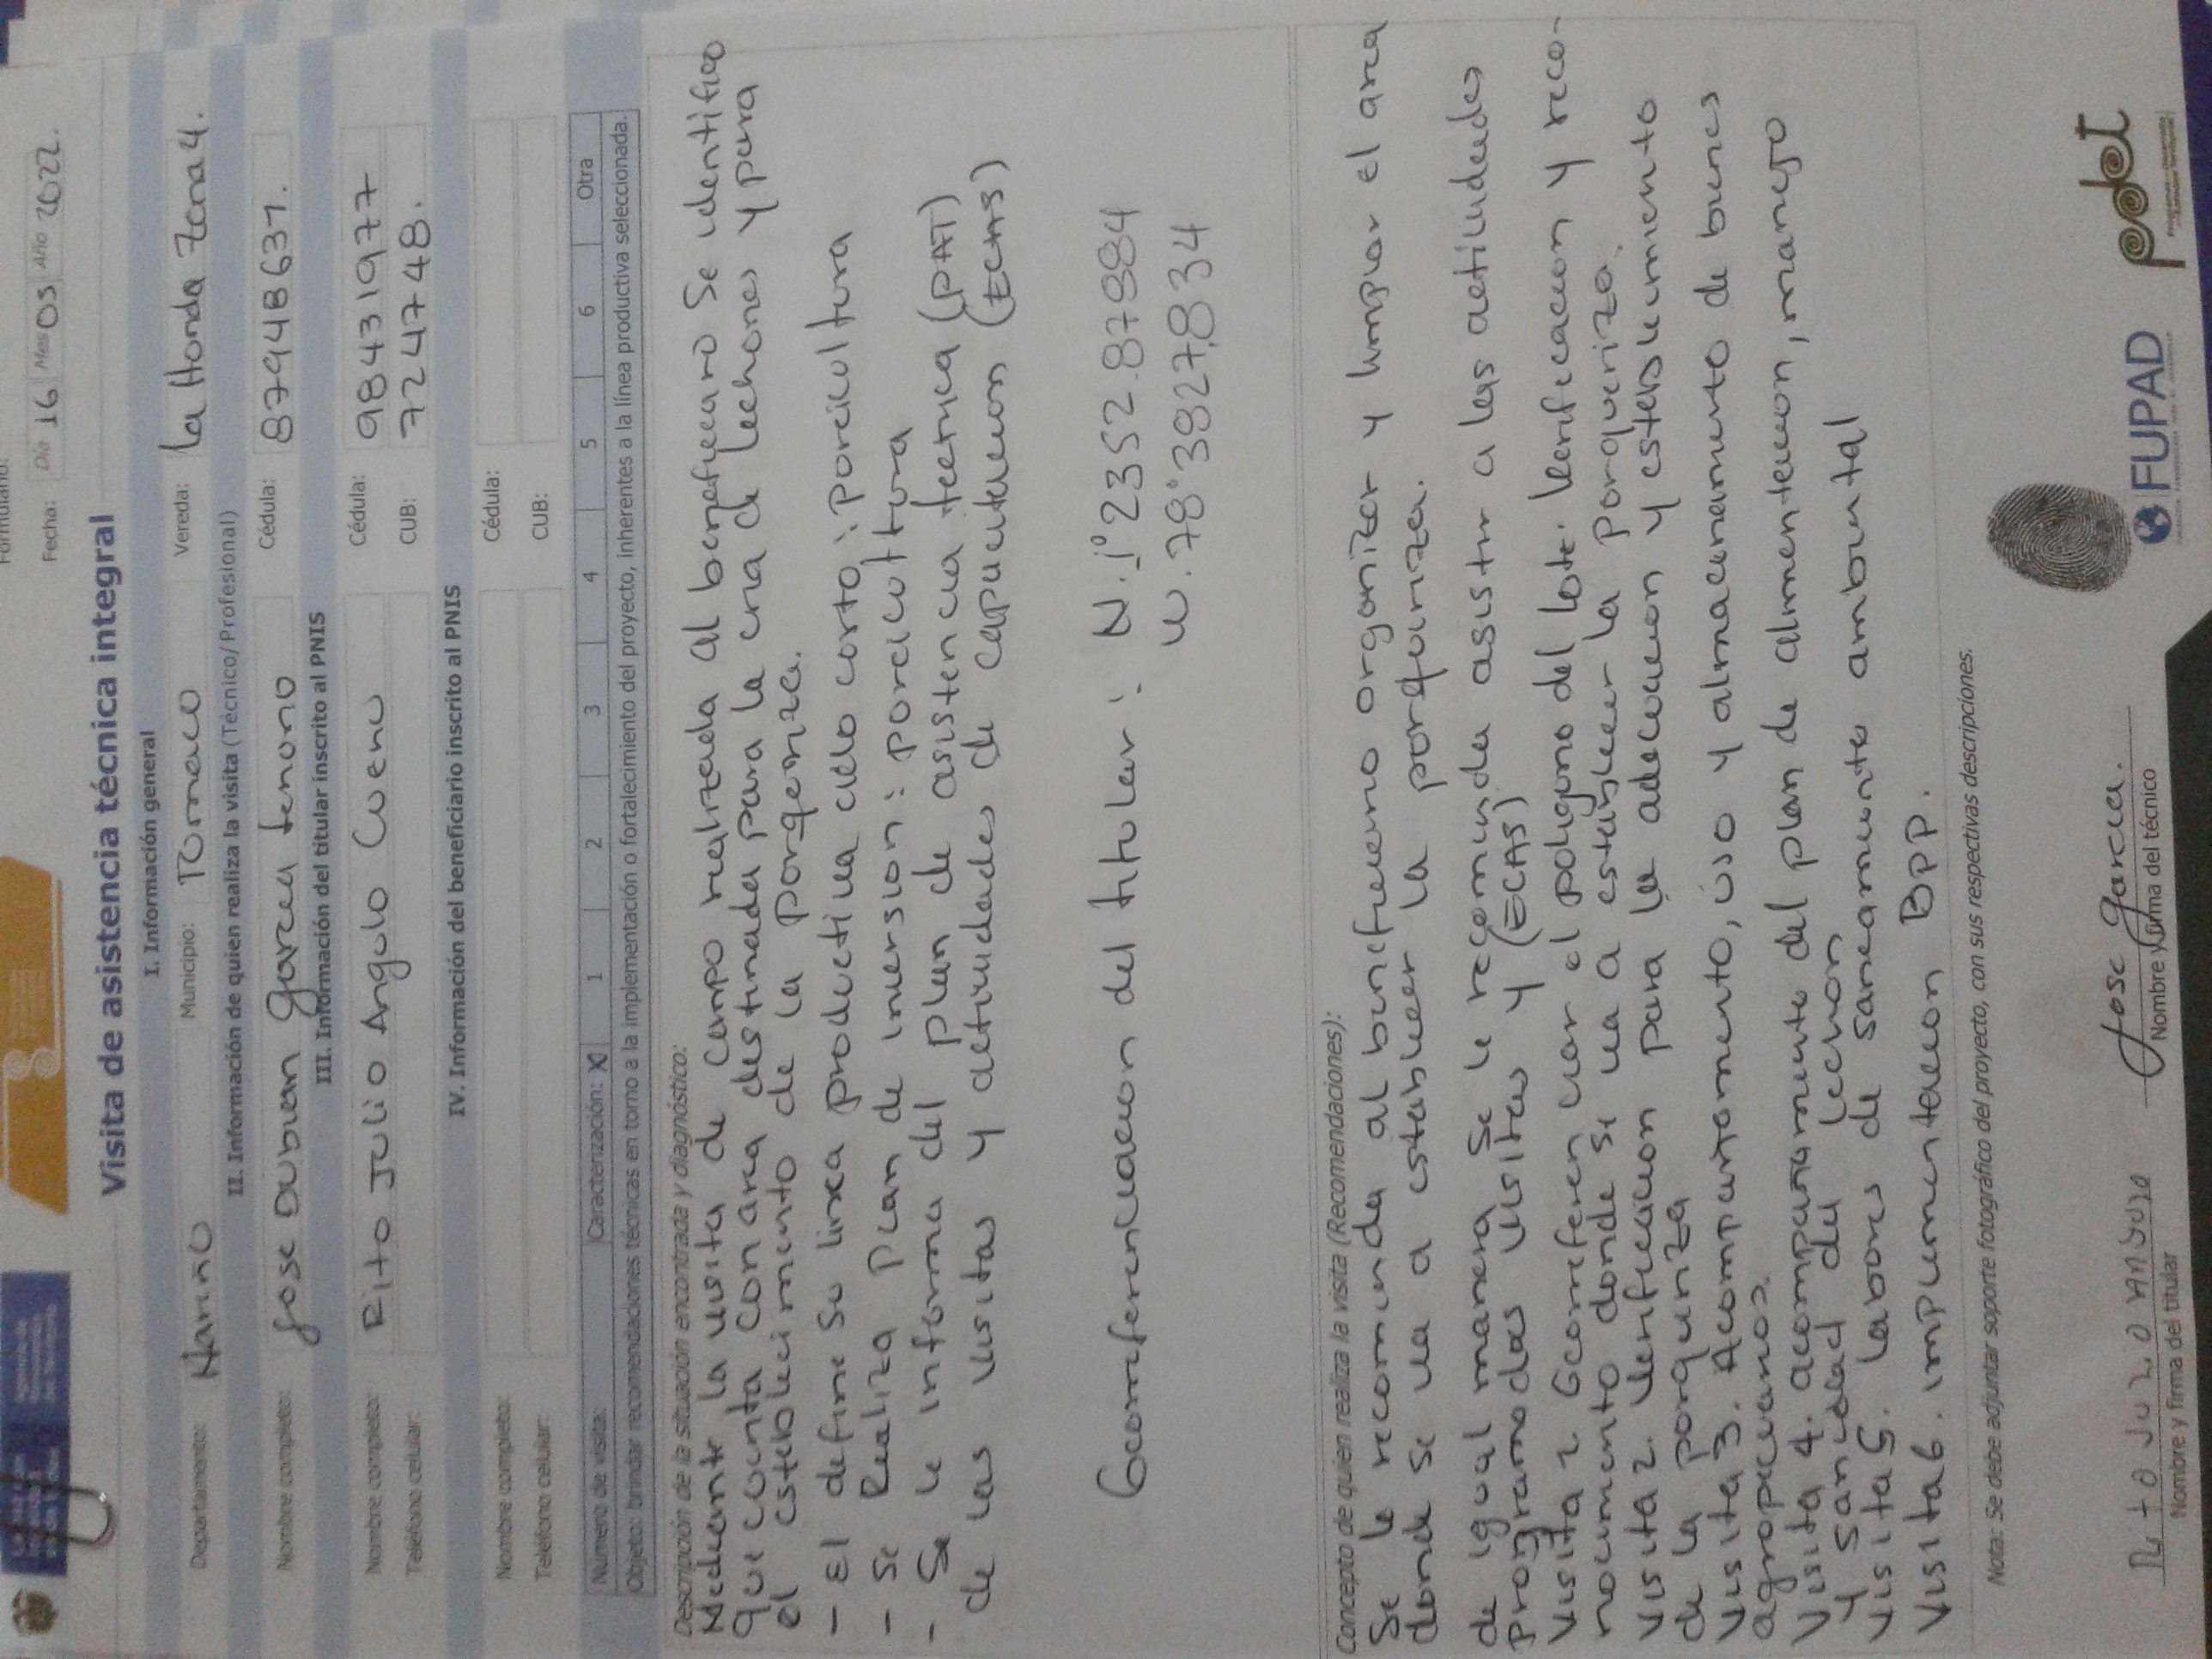 Formulario:
Fecha: Día 16 Mes 03 Año 2022.
Visita de asistencia técnica integral
I. Información general
Departamento: Nariño Municipio: Tumaco Vereda: La Honda Zona 4.
II. Información de quien realiza la visita (Técnico/Profesional)
Nombre completo: Jose Duban Garcia tenorio Cédula: 87948631.
III. Información del titular inscrito al PNIS
Nombre completo: Rito Julio Angulo Cuenu Cédula: 98431977
Teléfono celular: CUB: 7247748.
IV. Información del beneficiario inscrito al PNIS
Nombre completo: Cédula:
Teléfono celular: CUB:
Número de visita: Caracterización: X 1 2 3 4 5 6 Otra
Objeto: brindar recomendaciones técnicas en torno a la implementación o fortalecimiento del proyecto, inherentes a la línea productiva seleccionada.
Descripción de la situación encontrada y diagnóstico:
Mediante la visita de campo realizada al beneficiario Se identifico
que cuenta con area destinada para la cria de lechones y para
el establecimiento de la porqueriza.
- El define su linea productiva ciclo corto: porcicultura
- Se Realiza plan de inversion: porcicultura
- Se le informa del plan de asistencia tecnica (PAT)
de las visitas y actividades de capacitacion (ECAS)
Georeferenciacion del titular: N. 1° 2352.87884
W. 78° 3827,834
Concepto de quien realiza la visita (Recomendaciones):
Se le recomienda al beneficiario organizar y limpiar el area
donde se va a establecer la porqueriza.
de igual manera Se le recomienda asistir a las actividades
programadas visitas y (ECAS)
Visita 1 Georeferenciar el poligono del lote. Verificacion y reco-
nocimiento donde se va a establecer la porqueriza.
Visita 2. Verificacion para la adecuacion y establecimiento
de la porqueriza
Visita 3. Acompañamiento, uso y almacenamiento de bienes
agropecuarios.
Visita 4. acompañamiento del plan de alimentacion, manejo
y sanidad del lechon
Visita 5. labores de saneamiento ambiental
Visita 6. implementacion BPP.
Nota: Se debe adjuntar soporte fotográfico del proyecto, con sus respectivas descripciones.
Jose Garcia.
Nombre y firma del titular Nombre y firma del técnico
FUPAD pdet